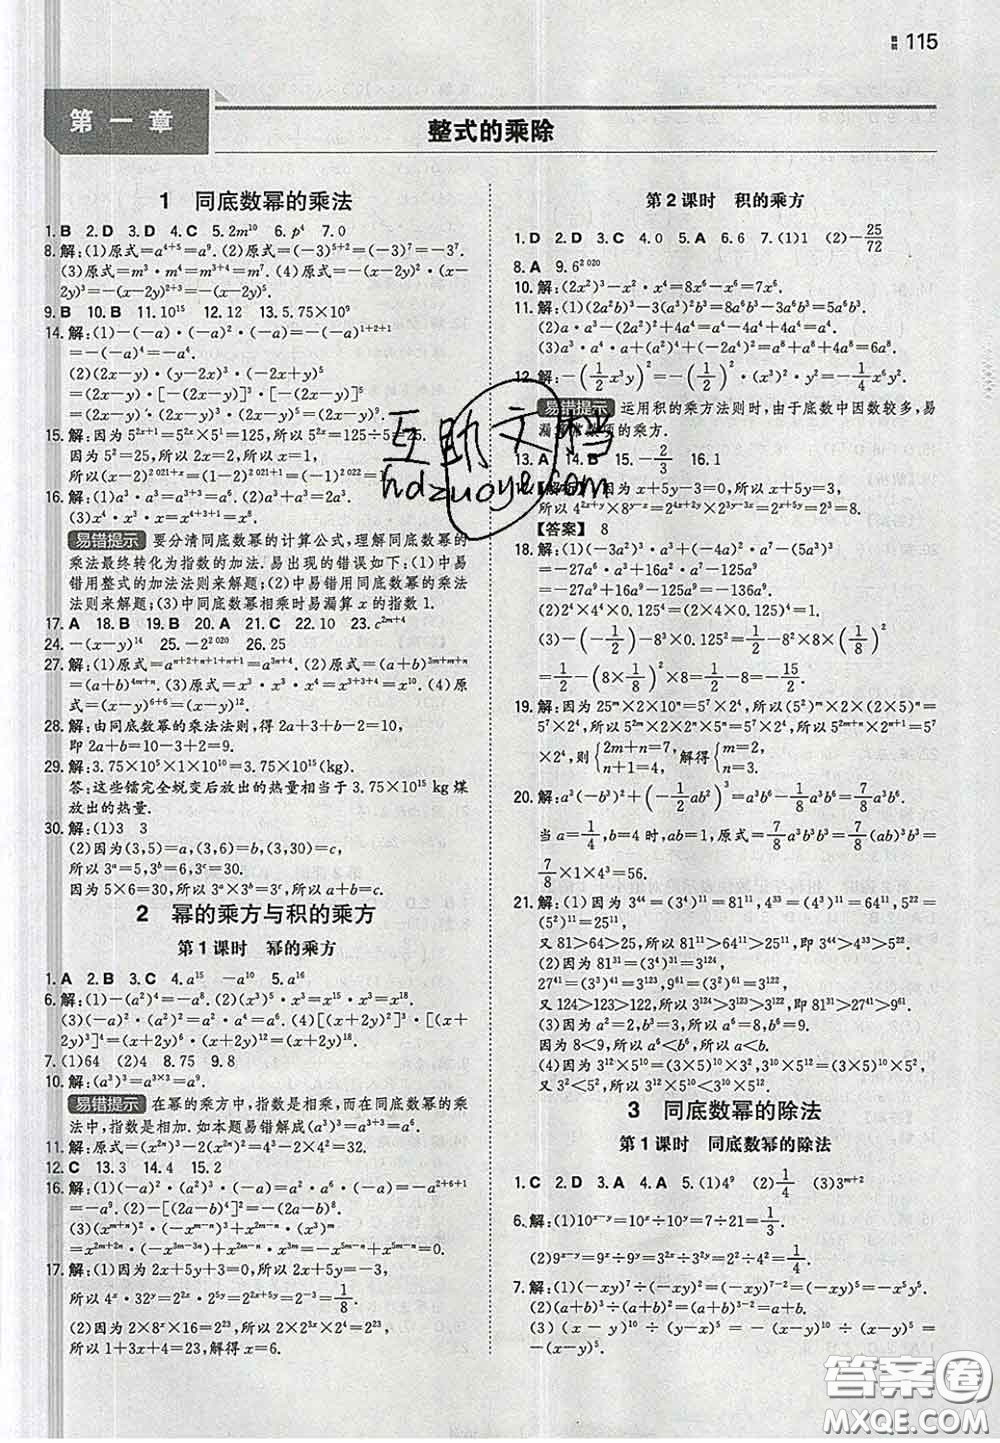 115
第一章
整式的乘除
1 同底数幂的乘法
1.B 2.D 3.D 4.C 5.2m¹⁰ 6.p⁴ 7.0
8.解:(1)原式=a⁴⁺⁵=a⁹. (2)原式=(-3)⁵⁺²=(-3)⁷=-3⁷.
(3)原式=m³·m⁴=m³⁺⁴=m⁷. (4)原式=-(x-2y)²·(x-
2y)³=-(x-2y)²⁺³=-(x-2y)⁵.
9.B 10.B 11.10¹⁵ 12.12 13.5.75×10⁹
14.解:(1)-(-a)·(-a)²·(-a)=-(-a)¹⁺²⁺¹
=-(-a)⁴=-a⁴.
(2)(2x-y)³·(y-2x)·(-2x+y)⁵
=(2x-y)³·[-(2x-y)]·(2x-y)⁵
15.解:因为5²ˣ⁺¹=5²ˣ×5¹=125,所以5²ˣ=125÷5=25.
因为5²=25,所以2x=2,所以x=1,
16.解:(1)a³·a³+a²·a⁴=a⁶+a⁶=2a⁶.
(3)x⁴·x³·x=x⁴⁺³⁺¹=x⁸.
易错提示 要分清同底数幂的计算公式,理解同底数幂的
乘法最终转化为指数的加法.易出现的错误如下:(1)中易
错用整式的加法法则来解题;(2)中易错用同底数幂的乘法
法则来解题;(3)中同底数幂相乘时易漏算x的指数1.
17.A 18.B 19.B 20.A 21.C 22.10 23.c²ᵐ⁺⁴
24.-(x-y)¹⁴ 25.-2²⁰²⁰ 26.25
27.解:(1)原式=aⁿ⁺²⁺ⁿ⁺¹⁺ⁿ⁺¹=a³ⁿ⁺⁴. (2)原式=(a+b)³ᵐ⁺ᵐ⁺ⁿ
=(a+b)⁴ᵐ⁺ⁿ. (3)原式=x³·x³·x⁴=x³⁺³⁺⁴=x¹⁰. (4)原
式=(x-y)⁶⁺⁶=(x-y)¹².
28.解:由同底数幂的乘法法则,得2a+3+b-2=10,
即2a+b=10-3+2=9.
29.解:3.75×10⁵×1×10¹⁰=3.75×10¹⁵(kg).
答:这些镭完全蜕变后放出的热量相当于3.75×10¹⁵ kg煤
放出的热量.
30.解:(1)3 3
(2)因为(3,5)=a,(3,6)=b,(3,30)=c,
所以3ᵃ=5,3ᵇ=6,3ᶜ=30.
因为5×6=30,所以3ᵃ×3ᵇ=3ᶜ,所以a+b=c.
2 幂的乘方与积的乘方
第1课时 幂的乘方
1.A 2.B 3.C 4.a¹⁵ -a¹⁰ 5.a¹⁶
6.解:(1)-(a²)⁴=-a⁸. (2)(x³)⁵·x³=x¹⁵·x³=x¹⁸.
(3)(-a)²·(a²)²=a²·a⁴=a⁶. (4)[(x+2y)²]³·[(x+
2y)³]⁴=(x+2y)⁶·(x+2y)¹²=(x+2y)¹⁸.
7.(1)64 (2)4 8.75 9.8
10.解:(a³)³=a³ˣ³=a⁹.
易错提示 在幂的乘方中,指数是相乘,而在同底数幂的乘
法中,指数是相加.如本题易错解成(a³)³=a³⁺³=a⁶.
11.解:原式=(x²ⁿ)³-2(x²ⁿ)²=4³-2×4²=32.
12.C 13.3 14.4 15.2
16.解:(1)(-a)²·(a²)³·(-a)=a²·a⁶·(-a)=-a²⁺⁶⁺¹
=-a⁹. (2)-[(2a-b)⁴]²=-(2a-b)⁸.
(3)(xᵐ⁺ⁿ)²·(-xᵐ⁻ⁿ)³+x²ᵐ⁻ⁿ·(x³)ᵐ
=x²ᵐ⁺²ⁿ·(-x³ᵐ⁻³ⁿ)+x²ᵐ⁻ⁿ·x³ᵐ=-x⁵ᵐ⁻ⁿ+x⁵ᵐ⁻ⁿ=0.
17.解:(1)因为2x+5y+3=0,所以2x+5y=-3,
所以4ˣ·32ʸ=2²ˣ·2⁵ʸ=2²ˣ⁺⁵ʸ=2⁻³=1/8.
(2)因为2×8ˣ×16=2²³,所以2×2³ˣ×2⁴=2²³,
所以1+3x+4=23,解得x=6.
第2课时 积的乘方
1.D 2.D 3.C 4.0 5.A 6.6 7.(1)1 (2)-25/72
8.A 9.6²⁰²⁰
10.解:(2x²)³-x²·x⁴=8x⁶-x⁶=7x⁶.
11.解:(1)(2a²b)³-3(a³)²b³=8a⁶b³-3a⁶b³=5a⁶b³.
(2)a·a³-(2a²)²+4a⁴=a⁴-4a⁴+4a⁴=a⁴.
(3)a³·a⁴·a+(a²)⁴+(-2a⁴)²=a⁸+a⁸+4a⁸=6a⁸.
12.解:-(1/2x³y)²=-(1/2)²·(x³)²·y²=-1/4x⁶y².
易错提示 运用积的乘方法则时,由于底数中因数较多,易
漏算常数项的乘方.
13.A 14.B 15.-2/3 16.1
因为x+5y-3=0,所以x+5y=3,
所以4²ˣ⁺ʸ×8ʸ⁻ˣ=2⁴ˣ⁺²ʸ×2³ʸ⁻³ˣ=2ˣ⁺⁵ʸ=2³=8.
【答案】 8
18.解:(1)(-3a³)³+a³·(-4a³)²-(5a³)³
=-27a⁹+a³·16a⁶-125a⁹
=-27a⁹+16a⁹-125a⁹=-136a⁹.
(2)2⁴×4⁴×0.125⁴=(2×4×0.125)⁴=1.
(3)-(-1/2)-8³×0.125²=1/2-8²×8×(1/8)²
=1/2-(8×1/8)²×8=1/2-8=-15/2.
19.解:因为25ᵐ×2×10ⁿ=5⁷×2⁴,所以(5²)ᵐ×2×(2×5)ⁿ
=5⁷×2⁴,所以5²ᵐ×2×2ⁿ×5ⁿ=5⁷×2⁴,所以5²ᵐ⁺ⁿ×2ⁿ⁺¹=5⁷
×2⁴,则{2m+n=7, n+1=4, 解得{m=2, n=3.
20.解:a³(-b³)²+(-1/2ab²)³=a³b⁶-1/8a³b⁶=7/8a³b⁶.
当a=1/4,b=4时,ab=1,原式=7/8a³b³b³=7/8(ab)³b³=
7/8×1×4³=56.
21.解:(1)因为3⁴⁴=(3⁴)¹¹=81¹¹,4³³=(4³)¹¹=64¹¹,5²²=
(5²)¹¹=25¹¹,
又81>64>25,所以81¹¹>64¹¹>25¹¹,所以3⁴⁴>4³³>5²².
(2)因为81³¹=(3⁴)³¹=3¹²⁴,
27⁴¹=(3³)⁴¹=3¹²³,9⁶¹=(3²)⁶¹=3¹²²,
又124>123>122,所以3¹²⁴>3¹²³>3¹²²,所以81³¹>27⁴¹>9⁶¹.
(3)因为a²=2,b³=3,所以a⁶=8,b⁶=9.
因为8<9,所以a⁶<b⁶,所以a<b.
(4)因为3¹²×5¹⁰=(3×5)¹⁰×3²,3¹⁰×5¹²=(3×5)¹⁰×5²,
又3²<5²,所以3¹²×5¹⁰<3¹⁰×5¹².
3 同底数幂的除法
第1课时 同底数幂的除法
1.C 2.D 3.A 4.A 5.(1)4⁹ (2)1/4 (3)3ᵐ⁺²
6.解:(1)10ˣ⁻ʸ=10ˣ÷10ʸ=7÷21=1/3.
(2)9ˣ⁻ʸ=9ˣ÷9ʸ=3²ˣ÷3²ʸ=2²÷4²=1/4.
7.解:(1)(-xy)⁷÷(-xy)²=(-xy)⁷⁻²=(-xy)⁵=-x⁵y⁵.
(2)(a+b)³÷(a+b)²=(a+b)³⁻²=a+b.
(3)(x-y)¹⁰÷(y-x)⁵÷(x-y)=-(x-y)¹⁰÷(x-y)⁵÷(x-y)
互助文档
hdzuoye.com
答案圈
MXQE.COM